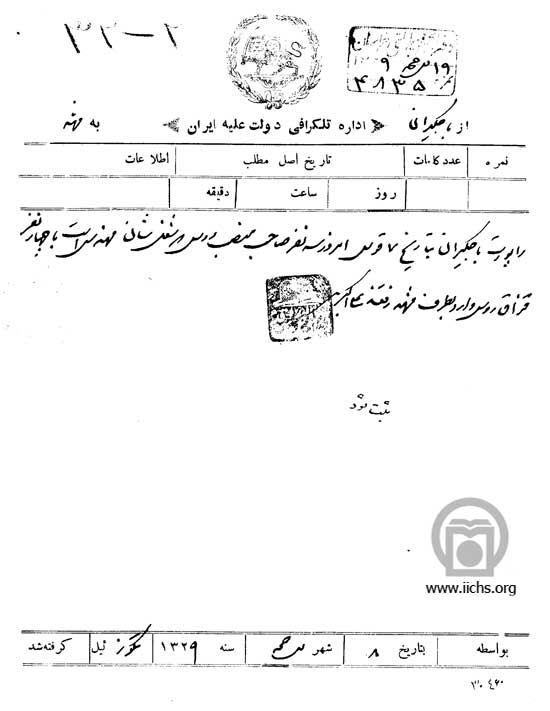 ۳۳-۲
۱۹
۹
۴۸۳۵
از باجگیرانی اداره تلگرافی دولت علیه ایران به مهنه
نمره عدد کلمات تاریخ اصل مطلب اطلاعات
روز ساعت دقیقه
راپورت باجگیرانی بتاریخ ۷ قوس امروز سه نفر صاحب منصب روس شغلشان مهندس است با چهار نفر
قزاق روس وارد بطرف مهنه رفتند علی اکبر
ثبت شود
www.iichs.org
بواسطه بتاریخ ۸ شهر ذی حجه سنه ۱۳۲۹ تنگوز ئیل گرفته شد